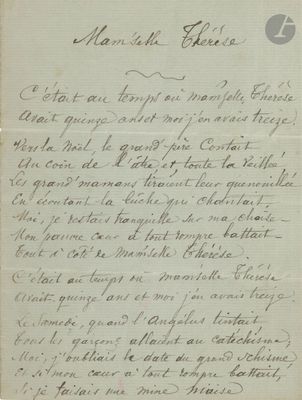 Mam'selle Thérèse
C'était au temps où mam'selle Thérèse
Avait quinze ans et moi j'en avais treize,
Vers la Noël, le grand-père Contait
Au coin de l'âtre, et toute la veillée
Les grand'mamans tiraient leur quenouillée
En écoutant la bûche qui chantait.
Moi, je restais tranquille sur ma chaise –
Mon pauvre cœur à tout rompre battait –
Tout à côté de Mam'selle Thérèse.
C'était au temps où mam'selle Thérèse
Avait quinze ans et moi j'en avais treize.
Le Samedi, quand l'Angélus tintait
Tous les garçons allaient au catéchisme,
Moi, j'oubliais la date du grand schisme
Et si mon cœur à tout rompre battait,
Si je faisais une mine niaise